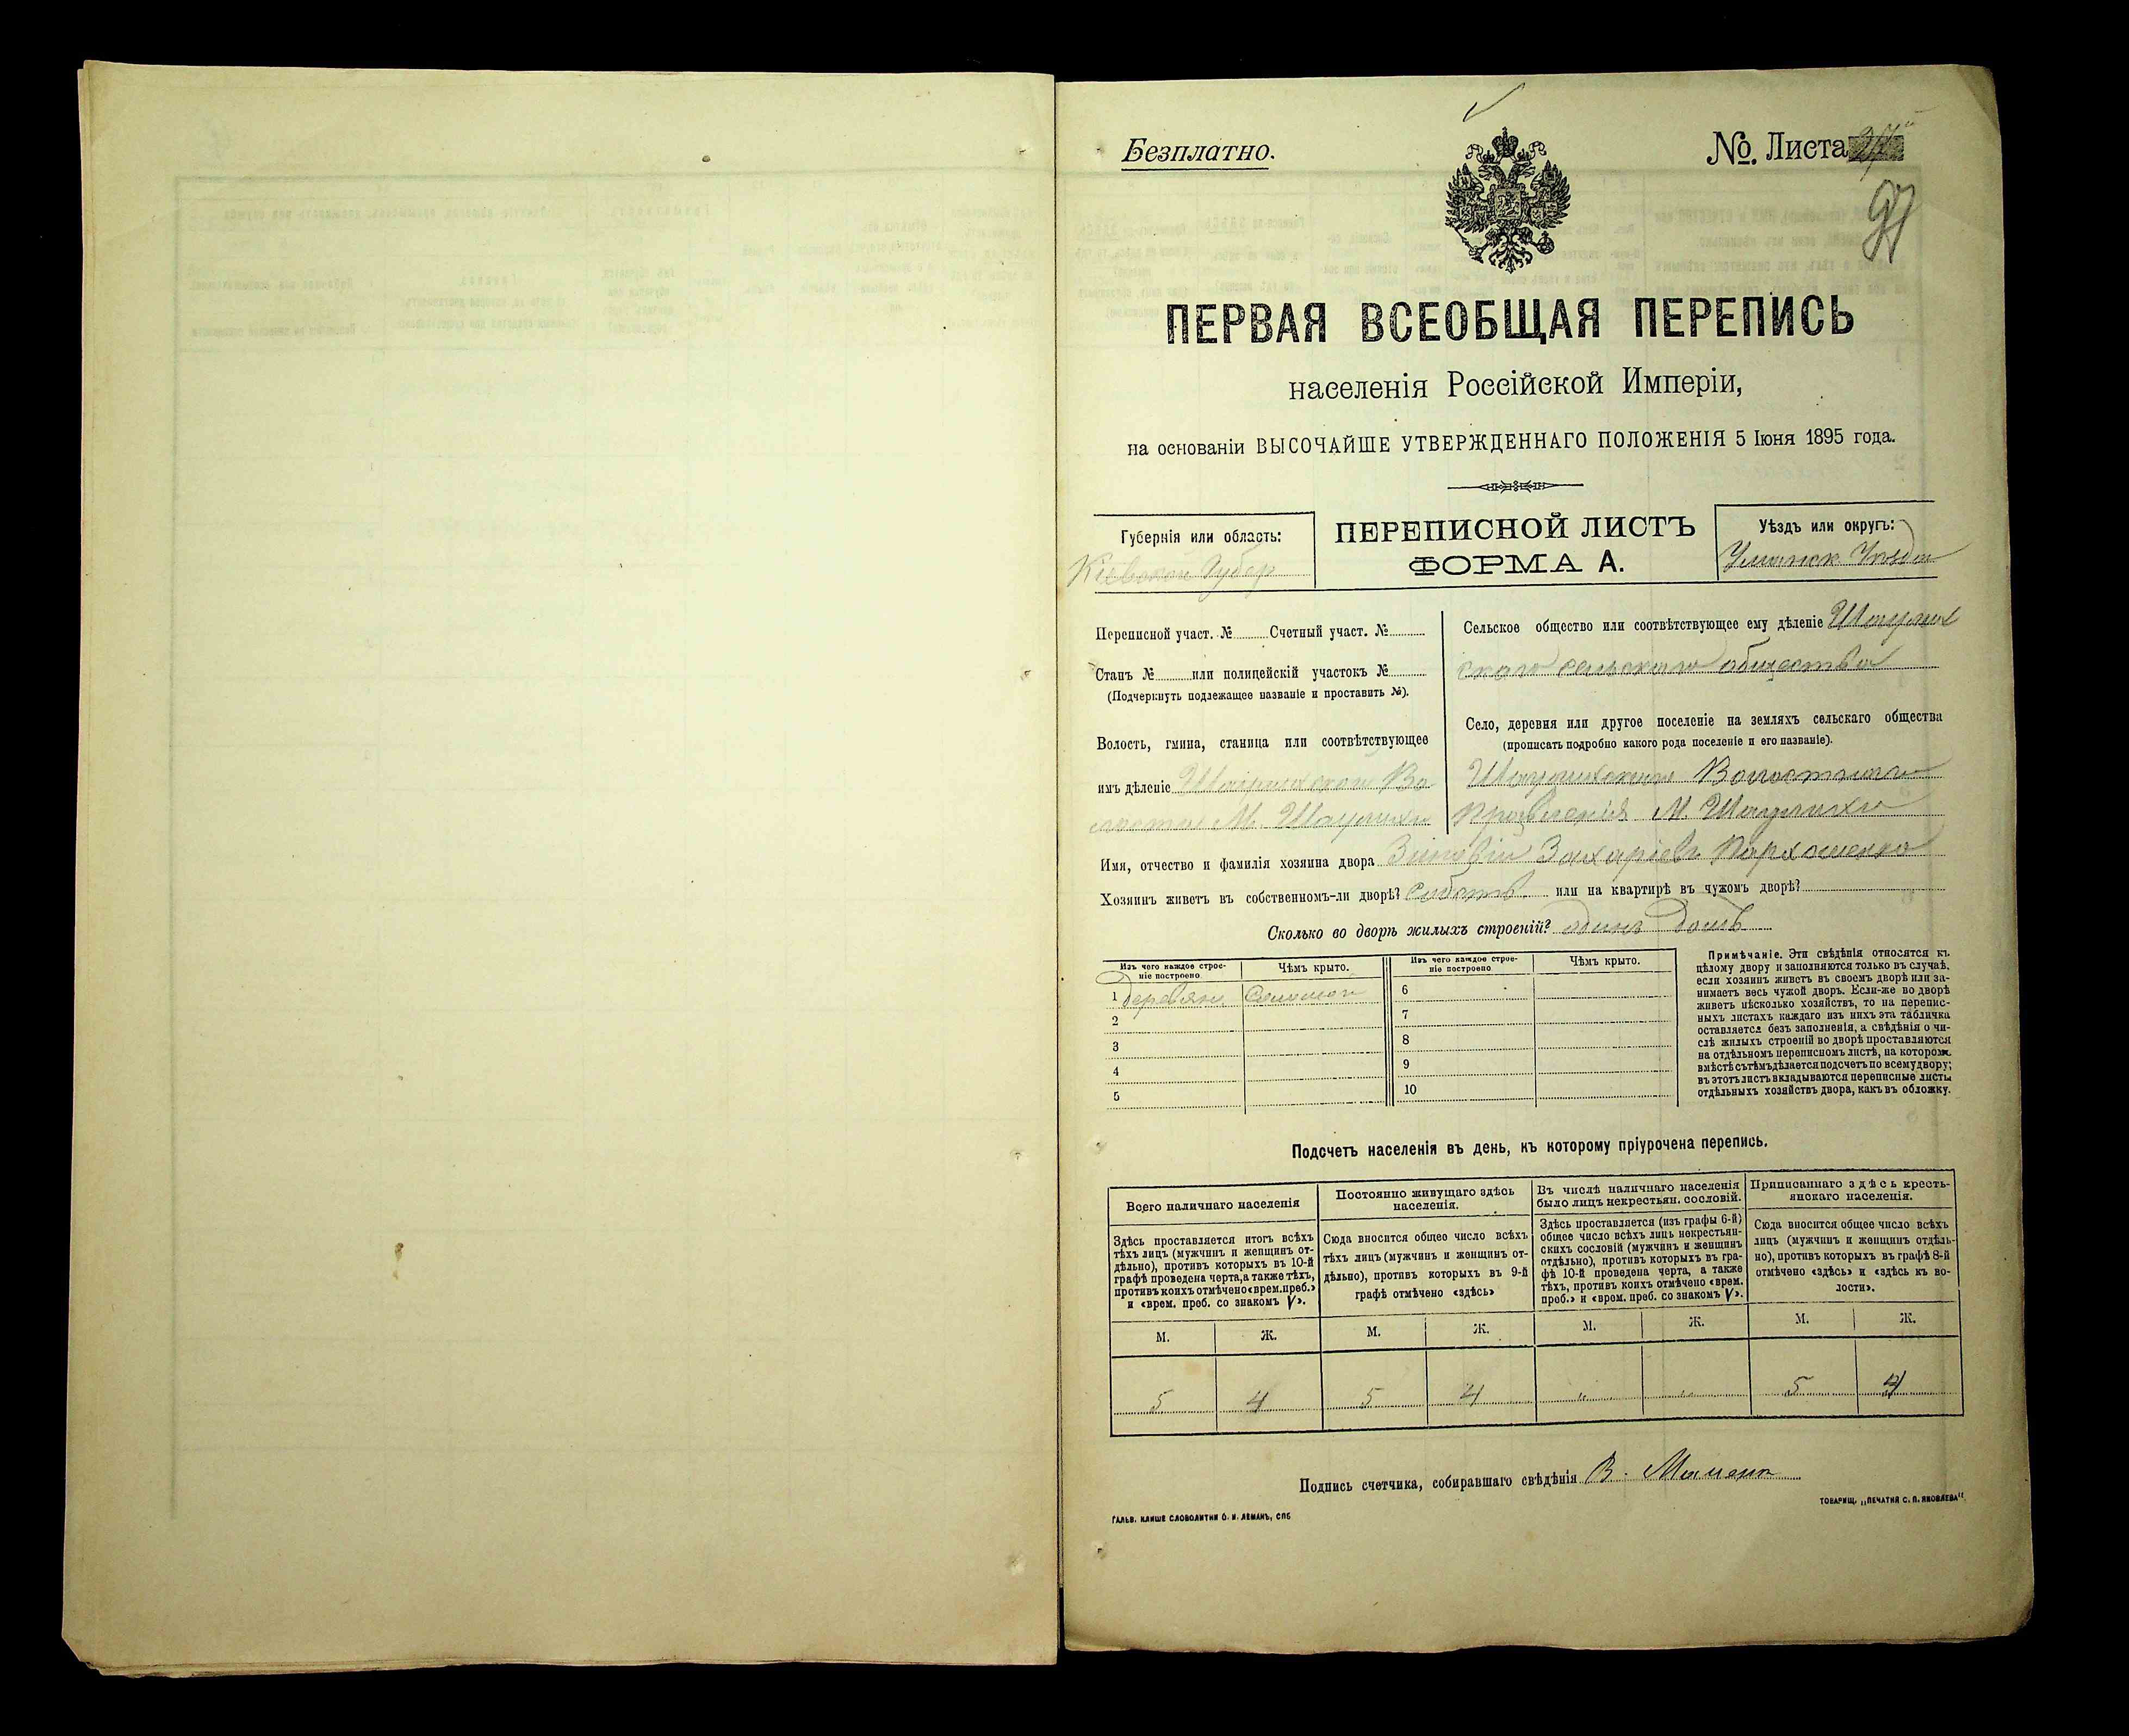 Безплатно.
№. Листа
97
ПЕРВАЯ ВСЕОБЩАЯ ПЕРЕПИСЬ
населенія Россійской Имперіи,
на основаніи ВЫСОЧАЙШЕ УТВЕРЖДЕННАГО ПОЛОЖЕНІЯ 5 Іюня 1895 года.
Губернія или область:
Кіевской Губер
ПЕРЕПИСНОЙ ЛИСТЪ
ФОРМА А.
Уѣздъ или округъ:
Уманск Уѣзда
Переписной участ. № Счетный участ. №
Станъ № или полицейскій участокъ №
(Подчеркнуть подлежащее названіе и проставить №).
Волость, гмина, станица или соотвѣтствующее
имъ дѣленіе Шаулихской Во
лости М. Шаулихи
Сельское общество или соотвѣтствующее ему дѣленіе Шаулих
скаго сельскаго общества
Село, деревня или другое поселеніе на земляхъ сельскаго общества
(прописать подробно какого рода поселеніе и его названіе).
Шаулихскаго Волостнаго
Правленія М. Шаулиха
Имя, отчество и фамилія хозяина двора Зиновій Захаріевъ Пархоменко
Хозяинъ живетъ въ собственномъ-ли дворѣ? собств. или на квартирѣ въ чужомъ дворѣ?
Сколько во дворѣ жилыхъ строеній? одинъ домъ
Изъ чего каждое строе-
ніе построено
Чѣмъ крыто.
Изъ чего каждое строе-
ніе построено
Чѣмъ крыто.
1 деревян Соломой
2
3
4
5
6
7
8
9
10
Примѣчаніе. Эти свѣдѣнія относятся къ
цѣлому двору и заполняются только въ случаѣ,
если хозяинъ живетъ въ своемъ дворѣ или за-
нимаетъ весь чужой дворъ. Если-же во дворѣ
живетъ нѣсколько хозяйствъ, то на перепис-
ныхъ листахъ каждаго изъ нихъ эта табличка
оставляется безъ заполненія, а свѣдѣнія о чи-
слѣ жилыхъ строеній во дворѣ проставляются
на отдѣльномъ переписномъ листѣ, на которомъ
вмѣстѣ съ тѣмъ дѣлается подсчетъ по всему двору;
въ этотъ листъ вкладываются переписные листы
отдѣльныхъ хозяйствъ двора, какъ въ обложку.
Подсчетъ населенія въ день, къ которому пріурочена перепись.
Всего наличнаго населенія
Здѣсь проставляется итогъ всѣхъ
тѣхъ лицъ (мужчинъ и женщинъ от-
дѣльно), противъ которыхъ въ 10-й
графѣ проведена черта, а также тѣхъ,
противъ коихъ отмѣчено «врем. преб.»
и «врем. преб. со знакомъ V».
Постоянно живущаго здѣсь
населенія.
Сюда вносится общее число всѣхъ
тѣхъ лицъ (мужчинъ и женщинъ от-
дѣльно), противъ которыхъ въ 9-й
графѣ отмѣчено «здѣсь»
Въ числѣ наличнаго населенія
было лицъ некрестьян. сословій.
Здѣсь проставляется (изъ графы 6-й)
общее число всѣхъ лицъ некрестьян-
скихъ сословій (мужчинъ и женщинъ
отдѣльно), противъ которыхъ въ гра-
фѣ 10-й проведена черта, а также
тѣхъ, противъ коихъ отмѣчено «врем.
преб.» и «врем. преб. со знакомъ V».
Приписаннаго здѣсь кресть-
янскаго населенія.
Сюда вносится общее число всѣхъ
лицъ (мужчинъ и женщинъ отдѣль-
но), противъ которыхъ въ графѣ 8-й
отмѣчено «здѣсь» и «здѣсь къ во-
лости».
М. Ж. М. Ж. М. Ж. М. Ж.
5 4 5 4 " " 5 4
Подпись счетчика, собиравшаго свѣдѣнія В.
ГАЛЬВ. КЛИШЕ СЛОВОЛИТНИ О. И. ЛЕМАНЪ, СПБ
ТОВАРИЩ. „ПЕЧАТНЯ С. П. ЯКОВЛЕВА"